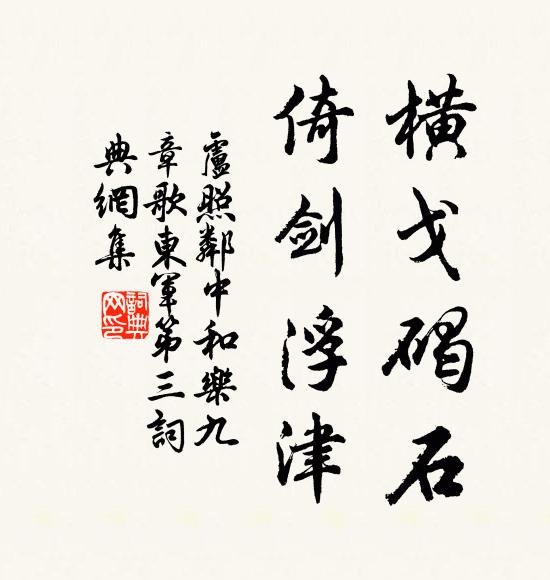 橫戈碣石
倚劍浮津
盧照鄰中和樂九
章歌東軍第三詞
典網集
詞典
网印